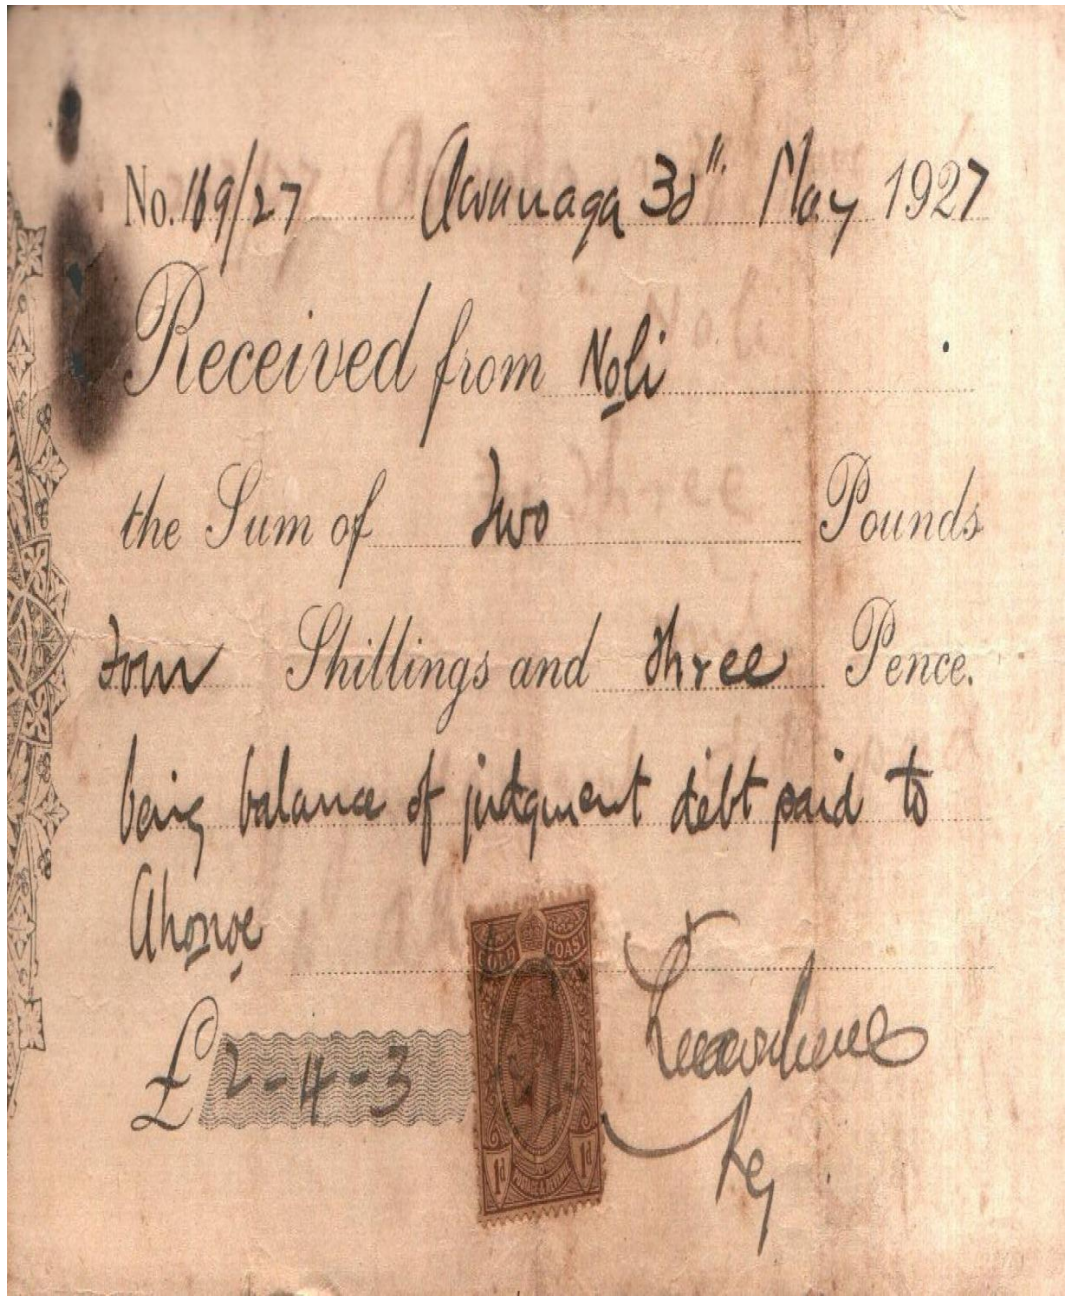 No. 169/27 Awunaga 3d" May 1927
Received from Noli
the Sum of Two Pounds
Four Shillings and Three Pence.
being balance of judgment debt paid to
Ahonoe
GOLD COAST
£ 2-4-3
1d 1d
Reg